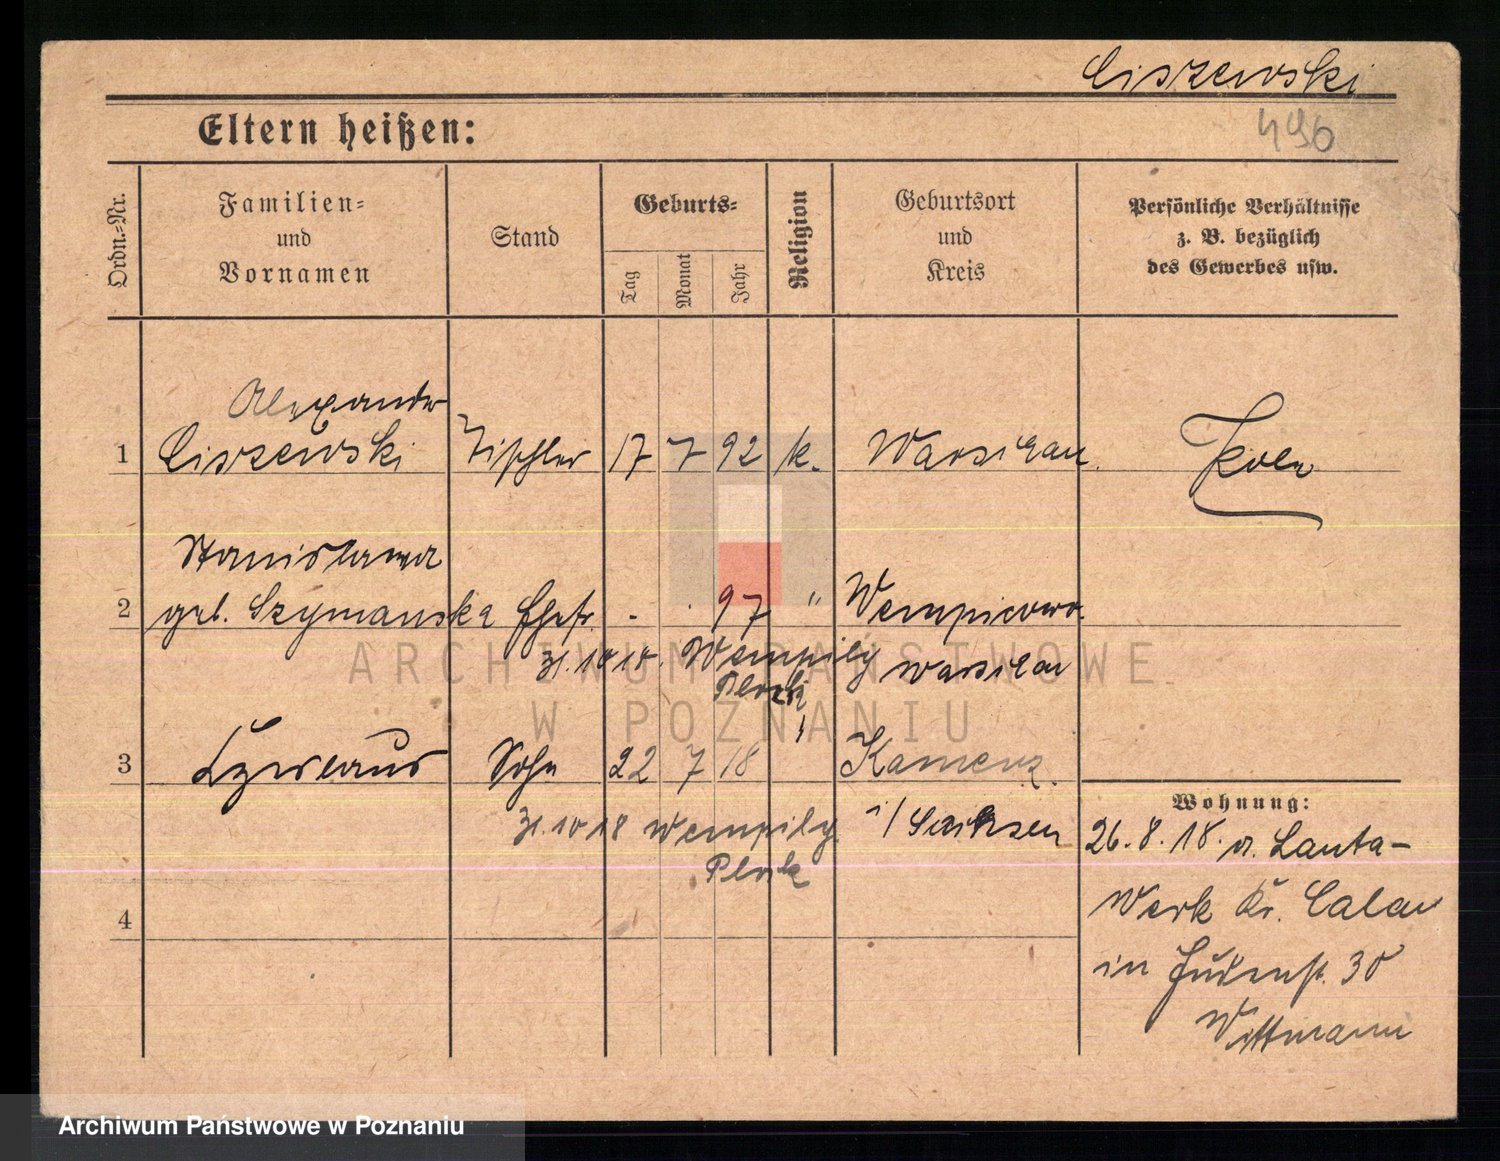 Ciszewski
496
Eltern heißen:
Ordn.-Nr.
Familien-
und
Vornamen
Stand
Geburts-
Tag
Monat
Jahr
Religion
Geburtsort
und
Kreis
Persönliche Verhältnisse
z. B. bezüglich
des Gewerbes usw.
Alexander
1 Ciszewski Tischler 17 7 92 k. Warschau Pole
Stanislawa
2 geb. Szymanska Ehefr. - . 97 "
31.10.18. Warschau
3 Sohn 22 7 18 " Kamenz
31.10.18 i/ Sachsen
4
Wohnung:
26.8.18. a. Lauta-
Werk Kr. Calau
in Judenstr. 30
Wittmann
ARCHIWUM PAŃSTWOWE
W POZNANIU
Archiwum Państwowe w Poznaniu